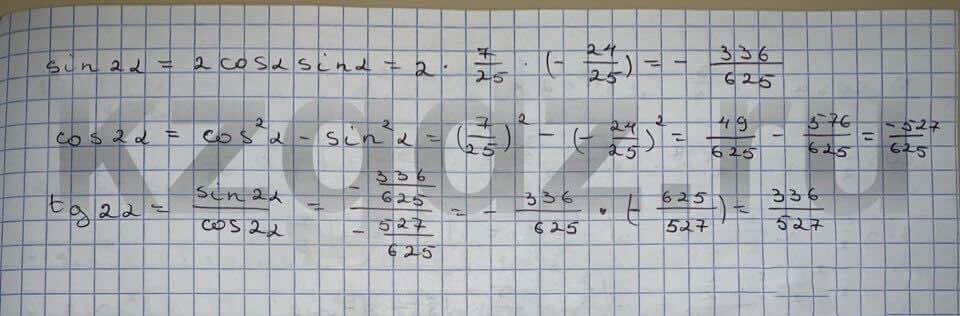 sin2α = 2cosα sinα = 2 · 7/25 · (- 24/25) = - 336/625
cos2α = cos²α - sin²α = (7/25)² - (- 24/25)² = 49/625 - 576/625 = -527/625
tg2α = sin2α/cos2α = (- 336/625)/(- 527/625) = - 336/625 · (- 625/527) = 336/527
kzgdz.ru